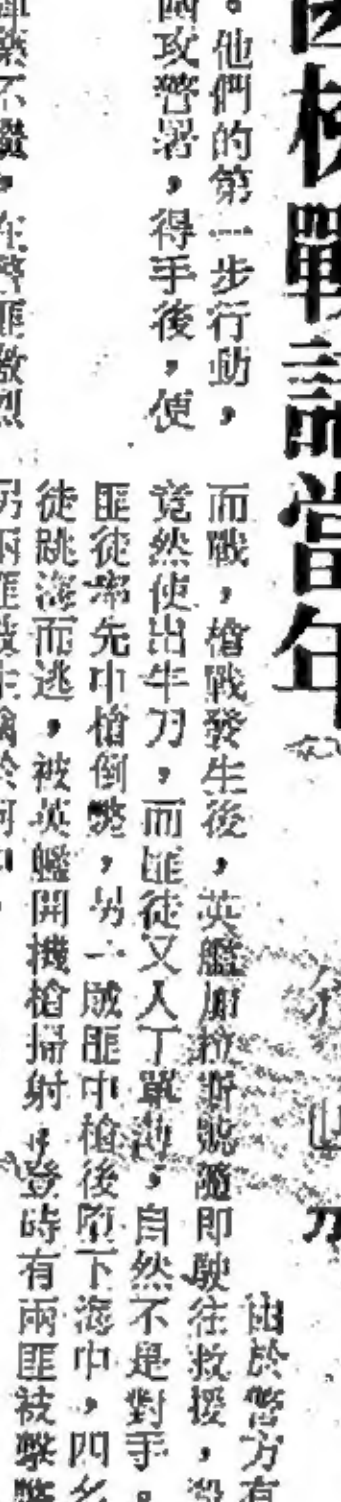 戰話當年
。他們的第一步行動，
攻警署，得手後，便
不繼，在警匪激烈
由於警方有
而戰，槍戰發生後，英艦加拉斯號隨即駛往救援，
竟然使出牛刀，而匪徒又人丁單薄，自然不是對手。
匪徒率先中槍倒斃，另一賊匪中槍後墮下海中，四名
徒跳海而逃，被英艦開機槍掃射，登時有兩匪被擊斃
另兩匪被生擒於